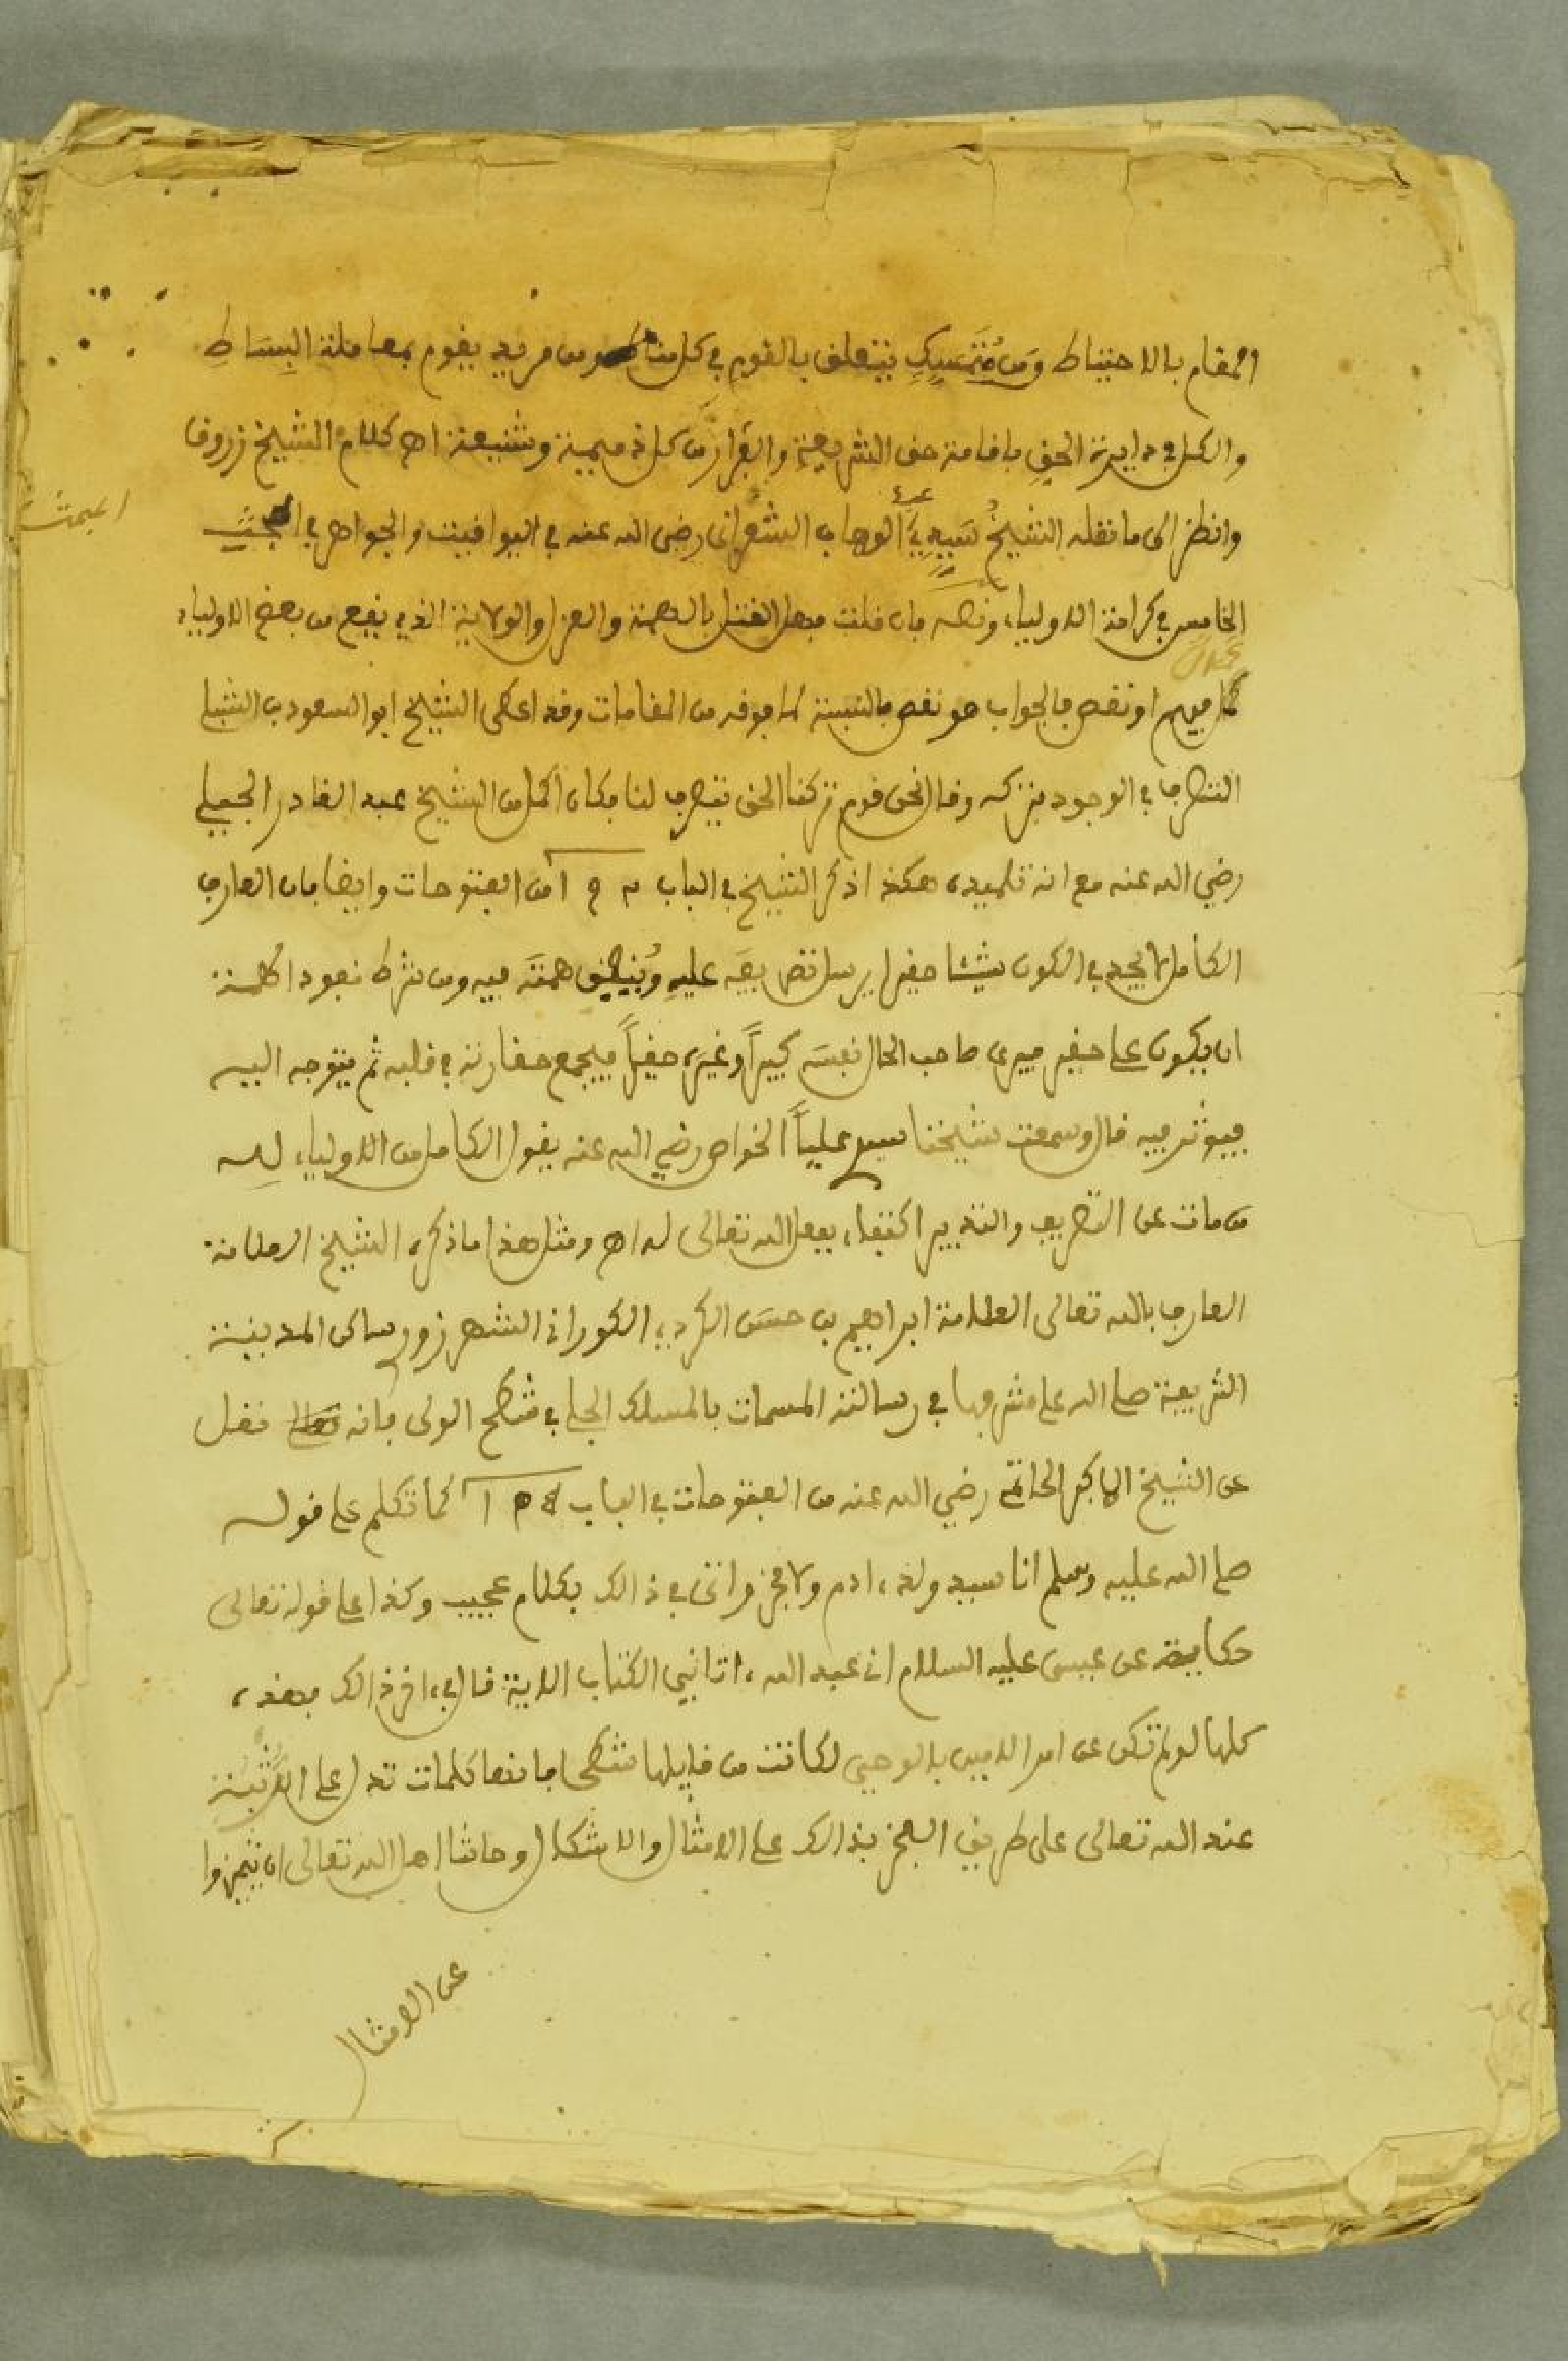 المقام بالاحتياط ومن مُتَمَسِّكٍ يتعلق بالقوم في كل مناط ومن مريد يقوم بمعاملة البِسَاطِ
والكل في دايرة الحق باقامة حق الشريعة والفرار من كل ذميمة وشنيعة اهـ كلام الشيخ زروق
وانظر الى ما نقله الشيخُ سَيِّدِي عبد الوهاب الشعراني رضي الله عنه في اليواقيت والجواهر في المبحث
المبحث
الخامس في كرامة الاولياء ونصه فان قلت فهل القتل بالهمة والعزل والولاية الذي يقع من بعض الاولياء
كمال
كمال فيهم او نقص فالجواب هو نقص بالنسبة لما فوقه من المقامات وقد اعطى الشيخ ابو السعود بن الشبلي
التصرف في الوجود فتركه وقال نحن قوم تركنا الحق يتصرف لنا فكان اكمل من الشيخ عبد القادر الجيلي
رضي الله عنه مع انه تلميذه هكذا ذكر الشيخ في الباب من الفتوحات وايضا فان العارف
الكامل لا يجد في الكون شيئا حقيرا يرسل تصريفَه عليهِ وُينفِذ همتَه فيه ومن شرط نفوذ الهمة
ان يكون على حقير فيرى صاحب الحال نفسَه كبيراً وغيرَه حقيراً فيجمع حقارته في قلبه ثم يتوجه اليه
فيوثر فيه قال وسمعت شيخنا سيدي علياً الخواص رضي الله عنه يقول الكامل من الاولياء له
من مات عن التصريف والتدبير اكتفاء بفعل الله تعالى له اهـ ومثل هذا ما ذكره الشيخ العلامة
العارف بالله تعالى العلامة ابراهيم بن حسَن الكردي الكوراني الشهرزوري ساكن المدينة
الشريفة صلى الله على مشرفها في رسالته المسمات بالمسلك الجلي في شطح الولي فانه نقل
عن الشيخ الاكبر الحاتمي رضي الله عنه من الفتوحات في الباب كما تكلم على قوله
صلى الله عليه وسلم انا سيد ولد ءادم ولا فخر واتى في ذالك بكلام عجيب وكذا على قوله تعالى
حكاية عن عيسى عليه السلام اني عبد الله ءاتاني الكتاب الاية قال في ءاخر ذالك فهذه
كلها لو لم تكن عن امر الاهي بالوحي لكانت من قايلها شطحا فانها كلمات تدل على الرُّتْبَة
عند الله تعالى على طريق الفخر بذالك على الامثال والاشكال وحاشا اهل الله تعالى ان يتميزوا
عن الامثال